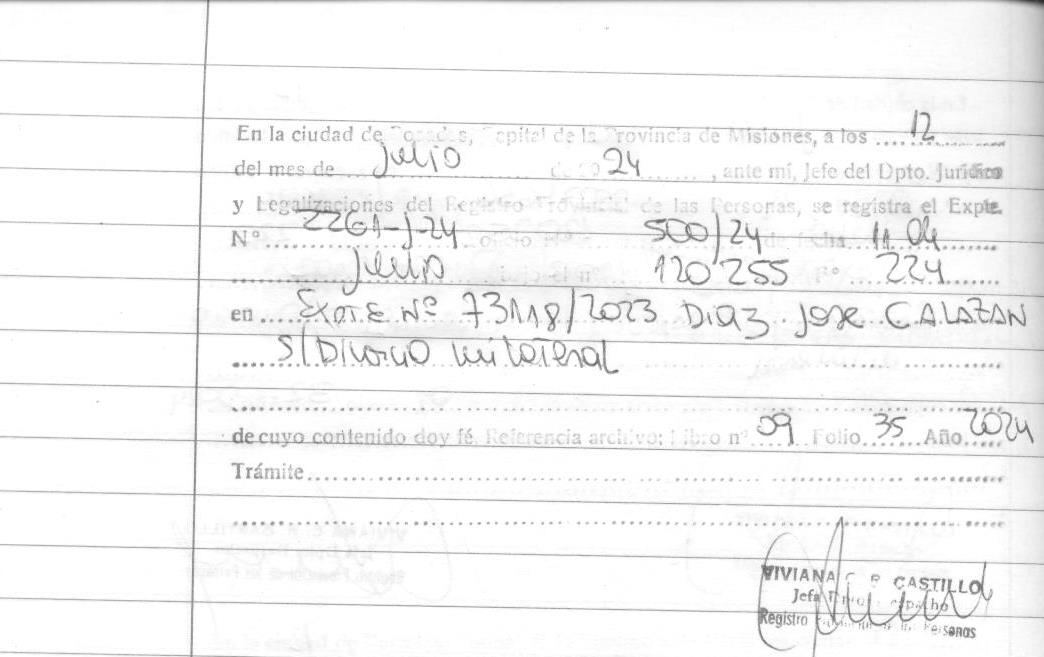 En la ciudad de Posadas, Capital de la Provincia de Misiones, a los ....12....
del mes de ....julio.... de 20 24 ...... , ante mí, Jefe del Dpto. Jurídico
y Legalizaciones del Registro Provincial de las Personas, se registra el Expte.
N° 2261-J-24 oficio N° 500/24 de fecha 11 04
julio 120 255 F° 224
en Expte Nº 73118/2023 Diaz Jose CALAZAN
S/Divorcio unilateral
de cuyo contenido doy fé. Referencia archivo: Libro nº 09 Folio 35 Año 2024
Trámite
VIVIANA C. R. CASTILLO
Jefa Dpto. Despacho
Registro Provincial de las Personas